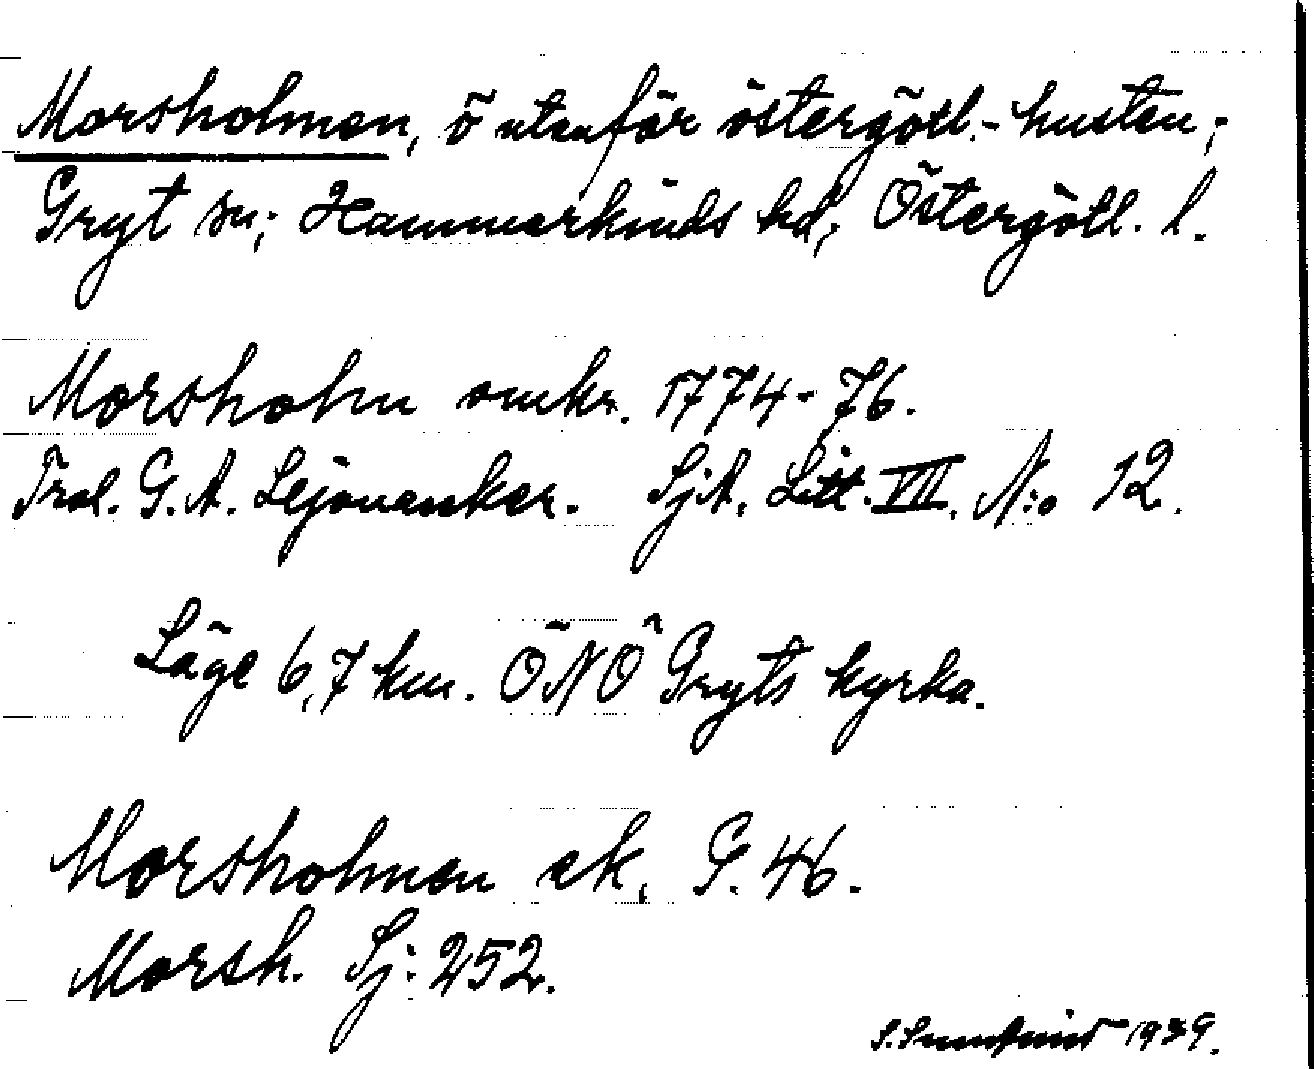 Morsholmen, ö utanför östergötl.-kusten;
Gryt sn; Hammarkinds hd, Östergötl. l.
Morsholm omkr. 1774-76.
Trol. G. A. Lejonanker. SjA. Litt. VII. N:o 12.
Läge 6,7 km. ÖNÖ Gryts kyrka.
Morsholmen ek. G. 46.
Morsh. Sj: 252.
S. 1939.